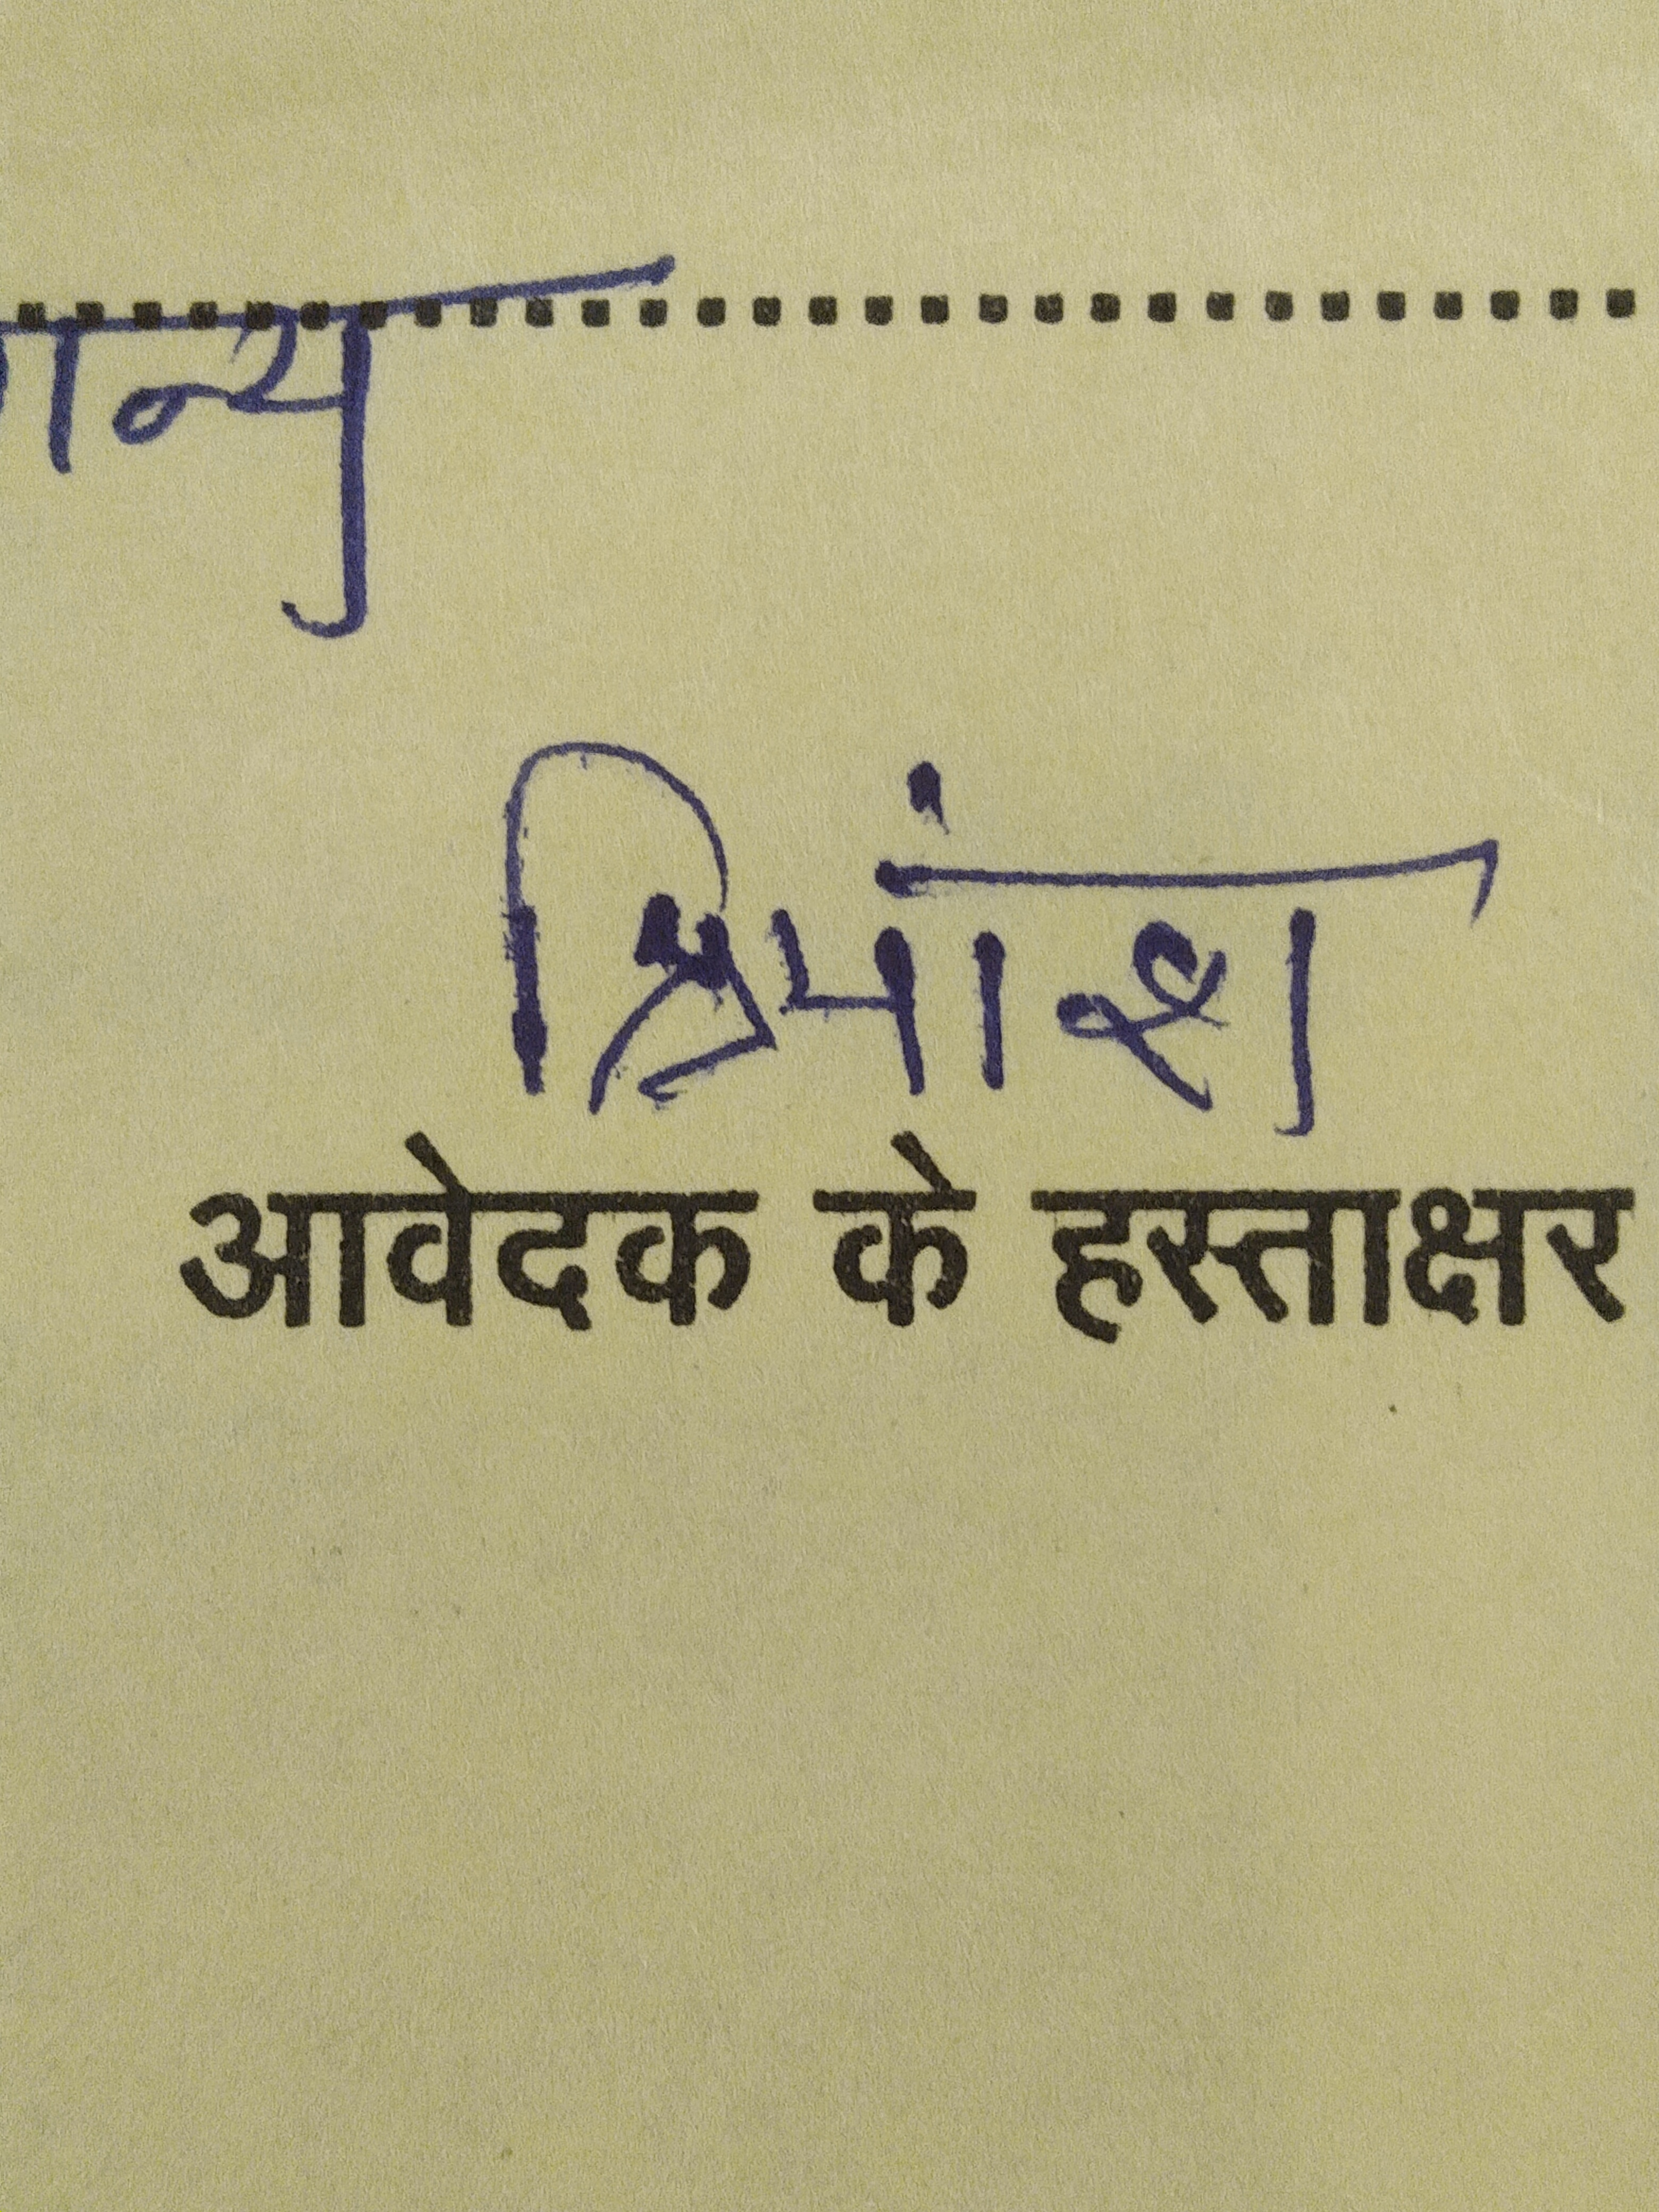 ान्य
प्रियांश
आवेदक के हस्ताक्षर